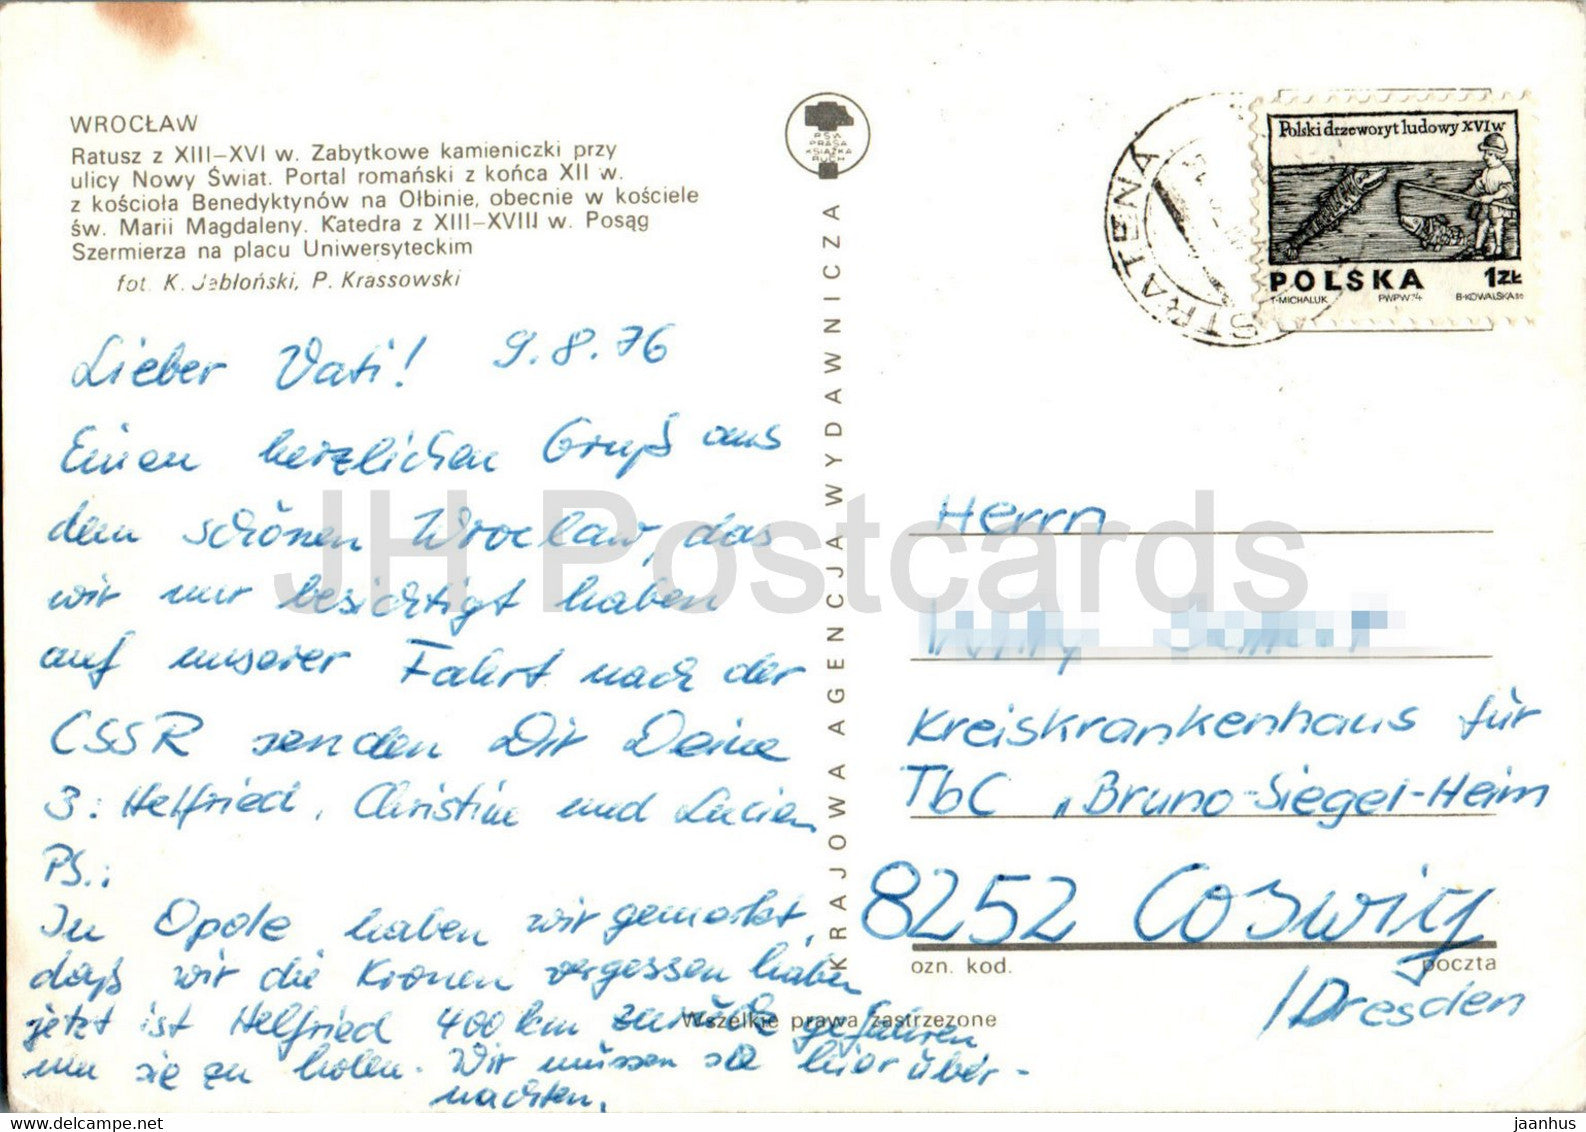 WROCŁAW
Ratusz z XIII–XVI w. Zabytkowe kamieniczki przy
ulicy Nowy Świat. Portal romański z końca XII w.
z kościoła Benedyktynów na Ołbinie, obecnie w kościele
św. Marii Magdaleny. Katedra z XIII–XVIII w. Posąg
Szermierza na placu Uniwersyteckim
fot. K. Jabłoński, P. Krassowski
Lieber Vati! 9.8.76
Einen herzlichen Gruß aus
dem schönen Wroclaw, das
wir nur besichtigt haben
auf unserer Fahrt nach der
CSSR senden Dir Deine
3: Helfried, Christine und Lucien
PS.:
In Opole haben wir gemerkt,
daß wir die Kronen vergessen haben
jetzt ist Helfried 400 km zurück gefahren
um sie zu holen. Wir müssen hier über-
nachten.
PSW
PRASA
KSIĄŻKA
RUCH
KRAJOWA AGENCJA WYDAWNICZA
Wszelkie prawa zastrzeżone
Polski drzeworyt ludowy XVI w
POLSKA 1ZŁ
T-MICHALUK PWPW 74 B-KOWALSKA
Herrn
Kreiskrankenhaus für
TbC „Bruno-Siegel-Heim
8252 Coswig
ozn. kod. poczta
/Dresden
JH Postcards
www.delcampe.net
jaanhus